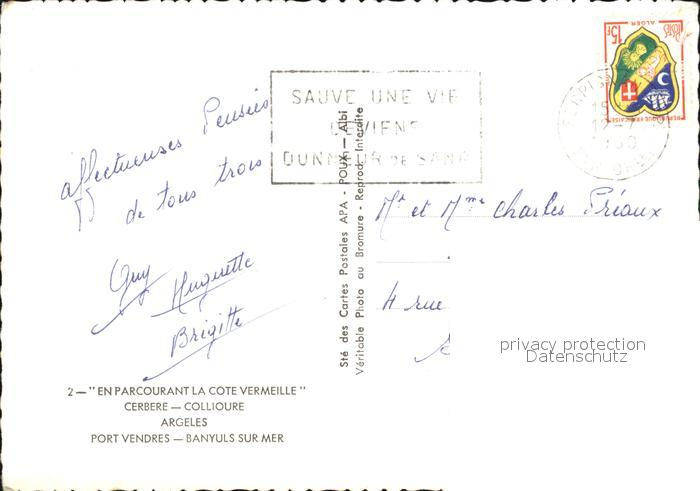 SAUVE UNE VIE
DEVIENS
DONNEUR DE SANG
15F
POSTES
ALGER
REPUBLIQUE FRANCAISE
affectueuses Pensées
de tous trois
Guy
Huguette
Brigitte
2 — " EN PARCOURANT LA COTE VERMEILLE "
CERBERE — COLLIOURE
ARGELES
PORT VENDRES — BANYULS SUR MER
Sté des Cartes Postales APA - POUX - Albi
Véritable Photo au Bromure - Reprod. Interdite
Mr et Mme Charles Préaux
4 rue
privacy protection
Datenschutz